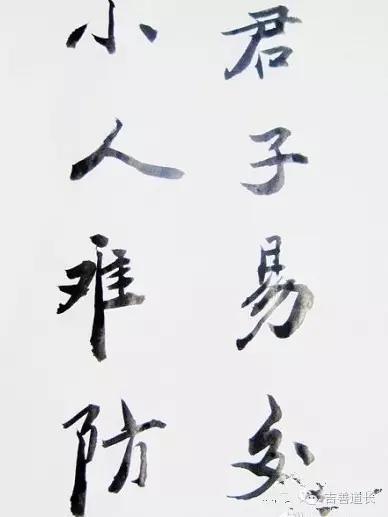 君子易处
小人难防
吉善道长